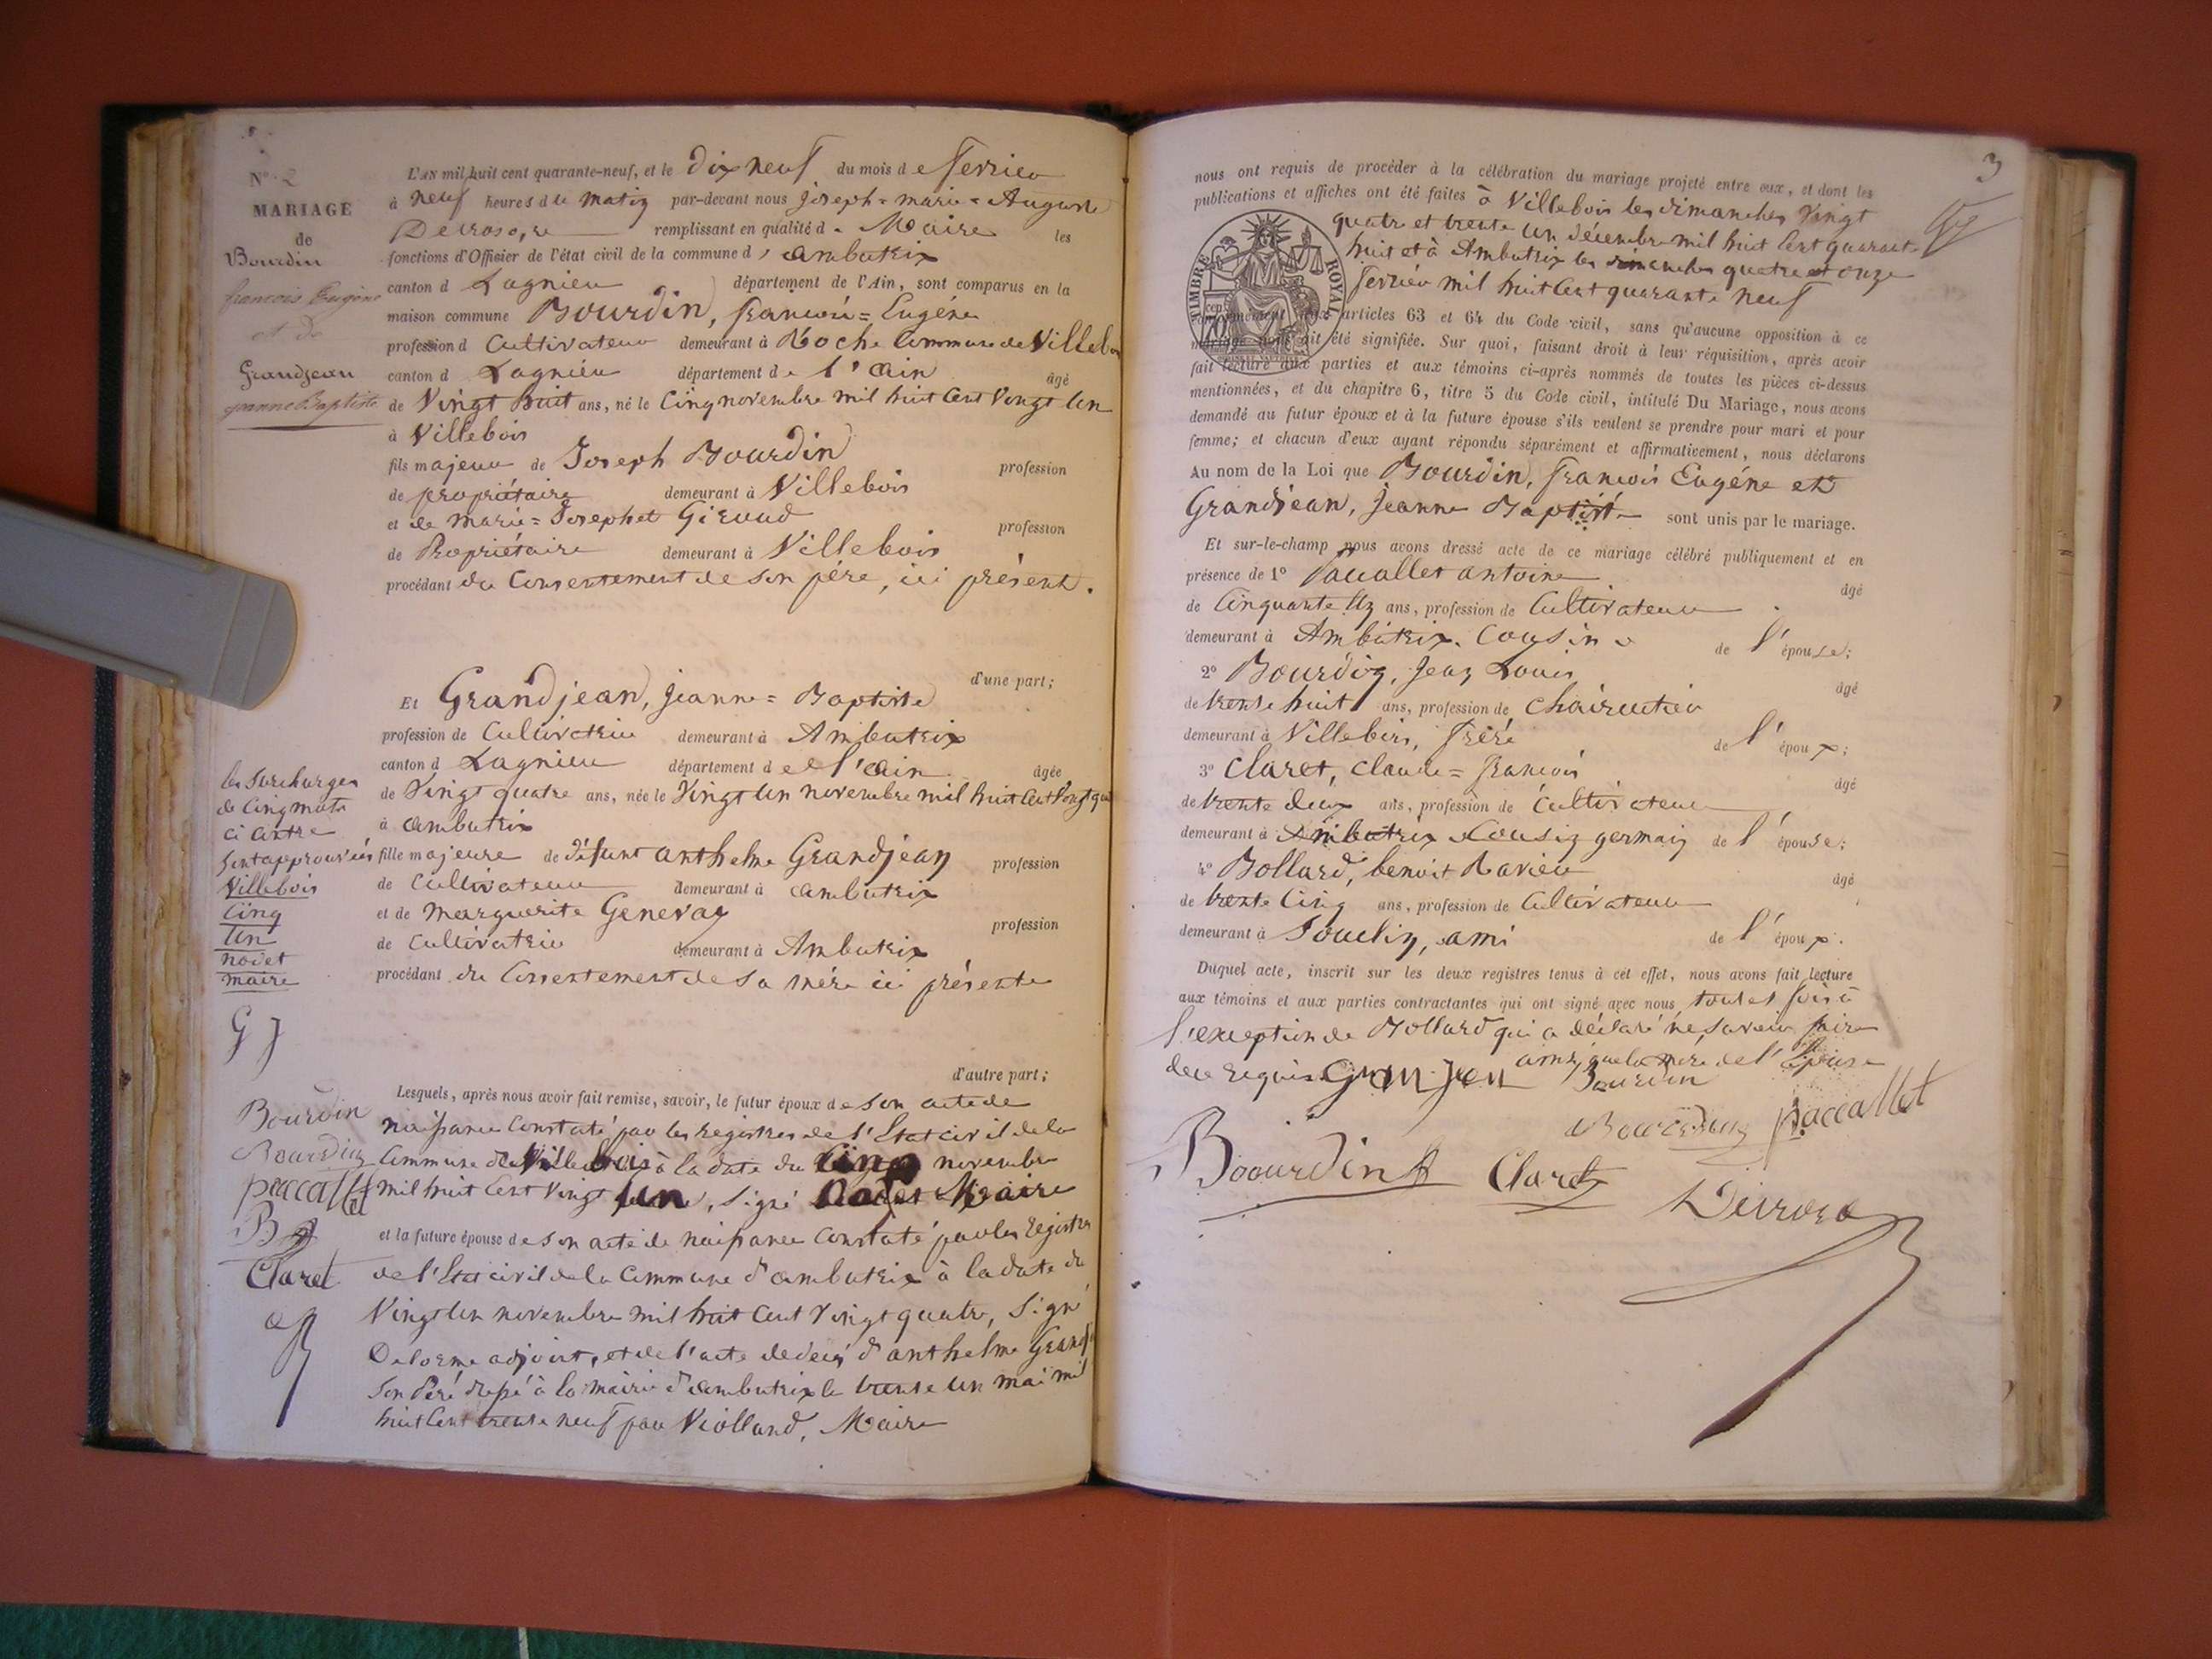 N° 2
MARIAGE
de
Bourdin
francois Eugène
et de
Grandjean
jeanne Baptiste
L'AN mil huit cent quarante-neuf, et le dix neuf du mois de fevrier
à neuf heures du matin par-devant nous joseph = marie = Auguste
remplissant en qualité de Maire les
fonctions d'Officier de l'état civil de la commune d'ambutrix
canton d Lagnieu département de l'Ain, sont comparus en la
maison commune Bourdin, francois = Eugéne
profession d Cultivateur demeurant à Roche Commune de Villebois
canton d Lagnieu département de l'ain âgé
de Vingt huit ans, né le Cinq novembre mil huit Cent Vingt Un
à Villebois
fils majeur de Joseph Bourdin profession
de propriétaire demeurant à Villebois
et de marie = Josephet Giroud profession
de Propriétaire demeurant à Villebois
procédant du Consentement de son père, ici présent.
d'une part;
Et Grandjean, jeanne = Baptiste
profession de Cultivatrice demeurant à Ambutrix
canton d Lagnieu département de l'ain âgée
de Vingt quatre ans, née le Vingt Un novembre mil huit Cent Vingt qu
à ambutrix
fille majeure de défunt anthelme Grandjean profession
de Cultivateur demeurant à ambutrix
et de marguerite Genevay profession
de Cultivatrice demeurant à Ambutrix
procédant du Consentement de sa mère ici présente
d'autre part;
les surcharges
de Cinq mots
ci Contre
sont approuvées
Villebois
Cinq
Un
nodet
maire
G J
Bourdin
Bourdin
paccallet
B
Claret
Lesquels, après nous avoir fait remise, savoir, le futur époux de son acte de
naissance Constaté par les registres de l'Etat civil de la
Commune de Villebois à la date du Cinq novembre
mil huit Cent Vingt Un, signé nodet Maire
et la future épouse de son acte de naissance Constaté par les registres
de l'Etat civil de la Commune d'ambutrix à la date du
Vingt Un novembre mil huit Cent Vingt quatre, signé
Delorme adjoint, et de l'acte de décés d'anthelme Grandj
son Péré dressé à la mairie d'ambutrix le trente Un mai mil
huit Cent trente neuf par Violland, Maire
3
nous ont requis de procéder à la célébration du mariage projeté entre eux, et dont les
publications et affiches ont été faites à Villebois les dimanches Vingt
quatre et trente Un décembre mil huit Cent quarante
huit et à Ambutrix les dimanches quatre et onze
fevrier mil huit Cent quarante neuf
TIMBRE ROYAL
70 cen
conformément aux articles 63 et 64 du Code civil, sans qu'aucune opposition à ce
mariage nous ait été signifiée. Sur quoi, faisant droit à leur réquisition, après avoir
fait lecture aux parties et aux témoins ci-après nommés de toutes les pièces ci-dessus
mentionnées, et du chapitre 6, titre 5 du Code civil, intitulé Du Mariage, nous avons
demandé au futur époux et à la future épouse s'ils veulent se prendre pour mari et pour
femme; et chacun d'eux ayant répondu séparément et affirmativement, nous déclarons
Au nom de la Loi que Bourdin, francois Eugéne et
Grandjean, jeanne Baptiste sont unis par le mariage.
Et sur-le-champ nous avons dressé acte de ce mariage célébré publiquement et en
présence de 1° Paccallet antoine âgé
de Cinquante Un ans, profession de Cultivateur
demeurant à Ambutrix. Cousin de l'épouse;
2° Bourdin, Jean Louis âgé
de trente huit ans, profession de Chaircutier
demeurant à Villebois, fréré de l'époux;
3° Claret, Claude = francois âgé
de trente deux ans, profession de Cultivateur
demeurant à Ambutrix Cousin germain de l'épouse;
4° Bollard, benoit Xavier âgé
de trente Cinq ans, profession de Cultivateur
demeurant à Souclin, ami de l'époux.
Duquel acte, inscrit sur les deux registres tenus à cet effet, nous avons fait lecture
aux témoins et aux parties contractantes qui ont signé avec nous, toutes fois à
l'exception de Bollard qui a déclaré ne savoir faire
de ce requis ainsi que la mère de l'épouse
Granjean Bourdin
Bourdin paccallet
Boourdin Claret